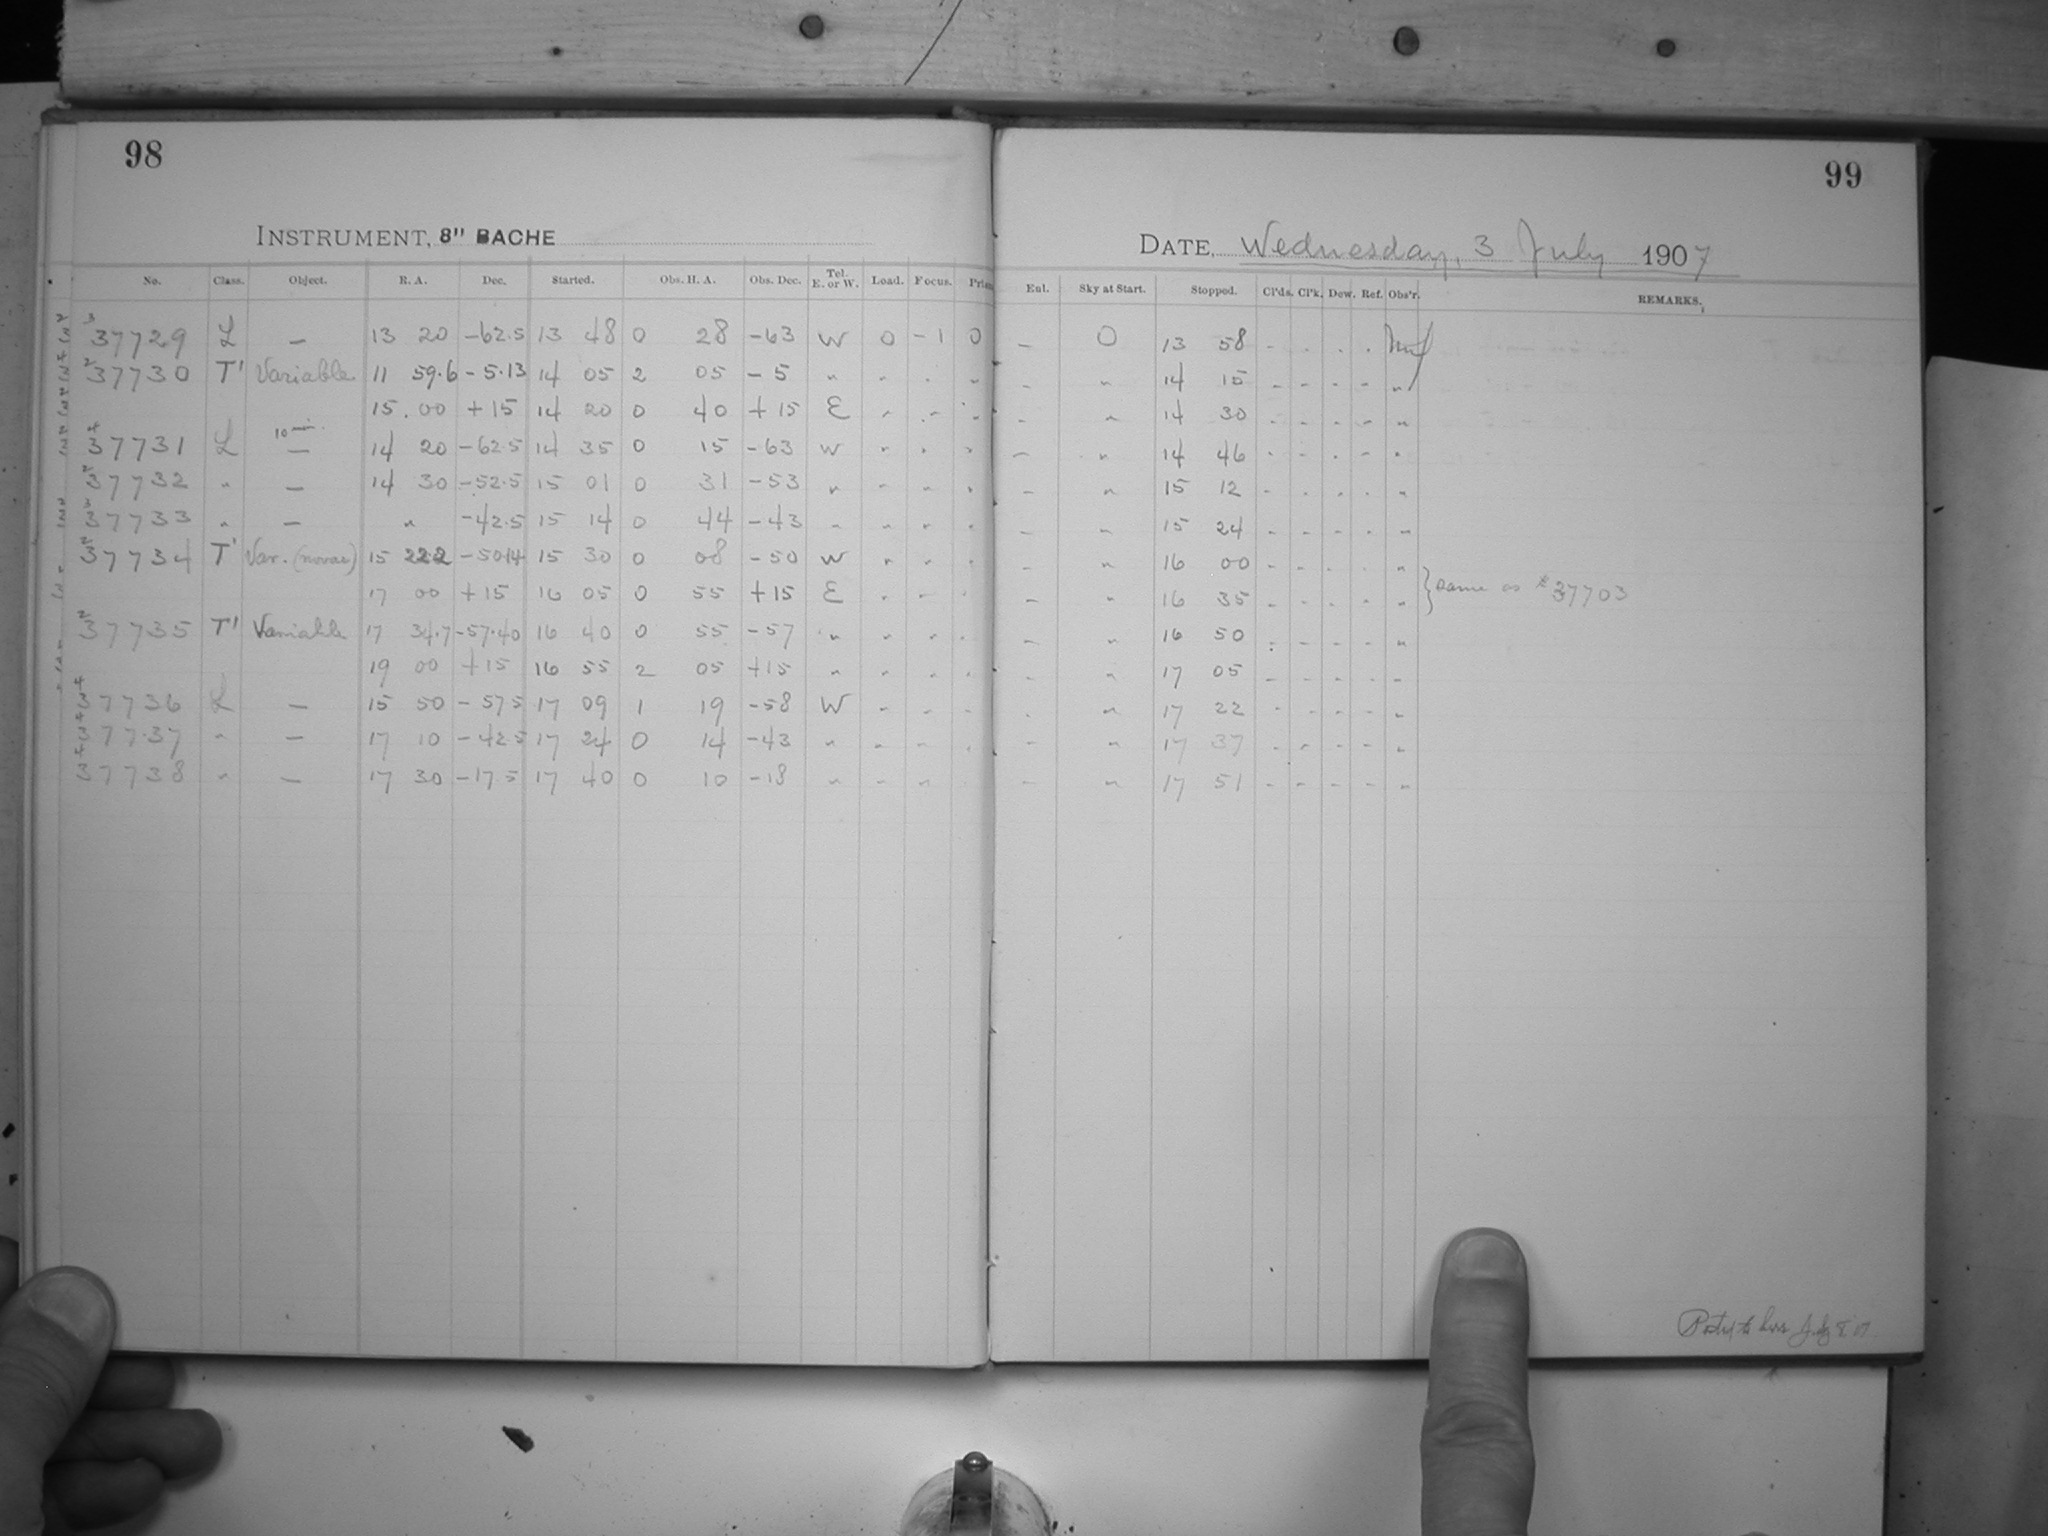 98
INSTRUMENT, 8" BACHE
No. Class. Object. R. A. Dec. Started. Obs. H. A. Obs. Dec. Tel. E. or W. Load. Focus.
37729 L — 13 20 -62.5 13 48 0 28 -63 W 0 -1 0
37730 T' Variable 11 59.6 -5.13 14 05 2 05 -5 " " " "
15.00 +15 14 20 0 40 +15 E " " "
10 min.
37731 L — 14 20 -62.5 14 35 0 15 -63 W " " "
37732 " — 14 30 -52.5 15 01 0 31 -53 " " " "
37733 " — " -42.5 15 14 0 44 -43 " " " "
37734 T' Var. (novae) 15 22.2 -50.14 15 30 0 08 -50 W " " "
17 00 +15 16 05 0 55 +15 E " " "
37735 T' Variable 17 34.7 -57.40 16 40 0 55 -57 " " " "
19 00 +15 16 55 2 05 +15 " " " "
37736 L — 15 50 -57.5 17 09 1 19 -58 W " " "
37737 " — 17 10 -42.5 17 24 0 14 -43 " " " "
37738 " — 17 30 -17.5 17 40 0 10 -18 " " "
99
DATE, Wednesday, 3 July 1907
Enl. Sky at Start. Stopped. Cl'ds. Cl'k. Dew. Ref. Obs'r. REMARKS.
— 0 13 58 " " " "
— " 14 15 " " " " "
— " 14 30 " " " " "
— " 14 46 " " " " "
— " 15 12 " " " " "
— " 15 24 " " " " "
" 16 00 " " " " "
— " 16 35 " " " " " } same as # 37703
— " 16 50 " " " " "
" " 17 05 " " " " "
" " 17 22 " " " " "
— " 17 37 " " " " "
— " 17 51 " " " " "
July 8 '07